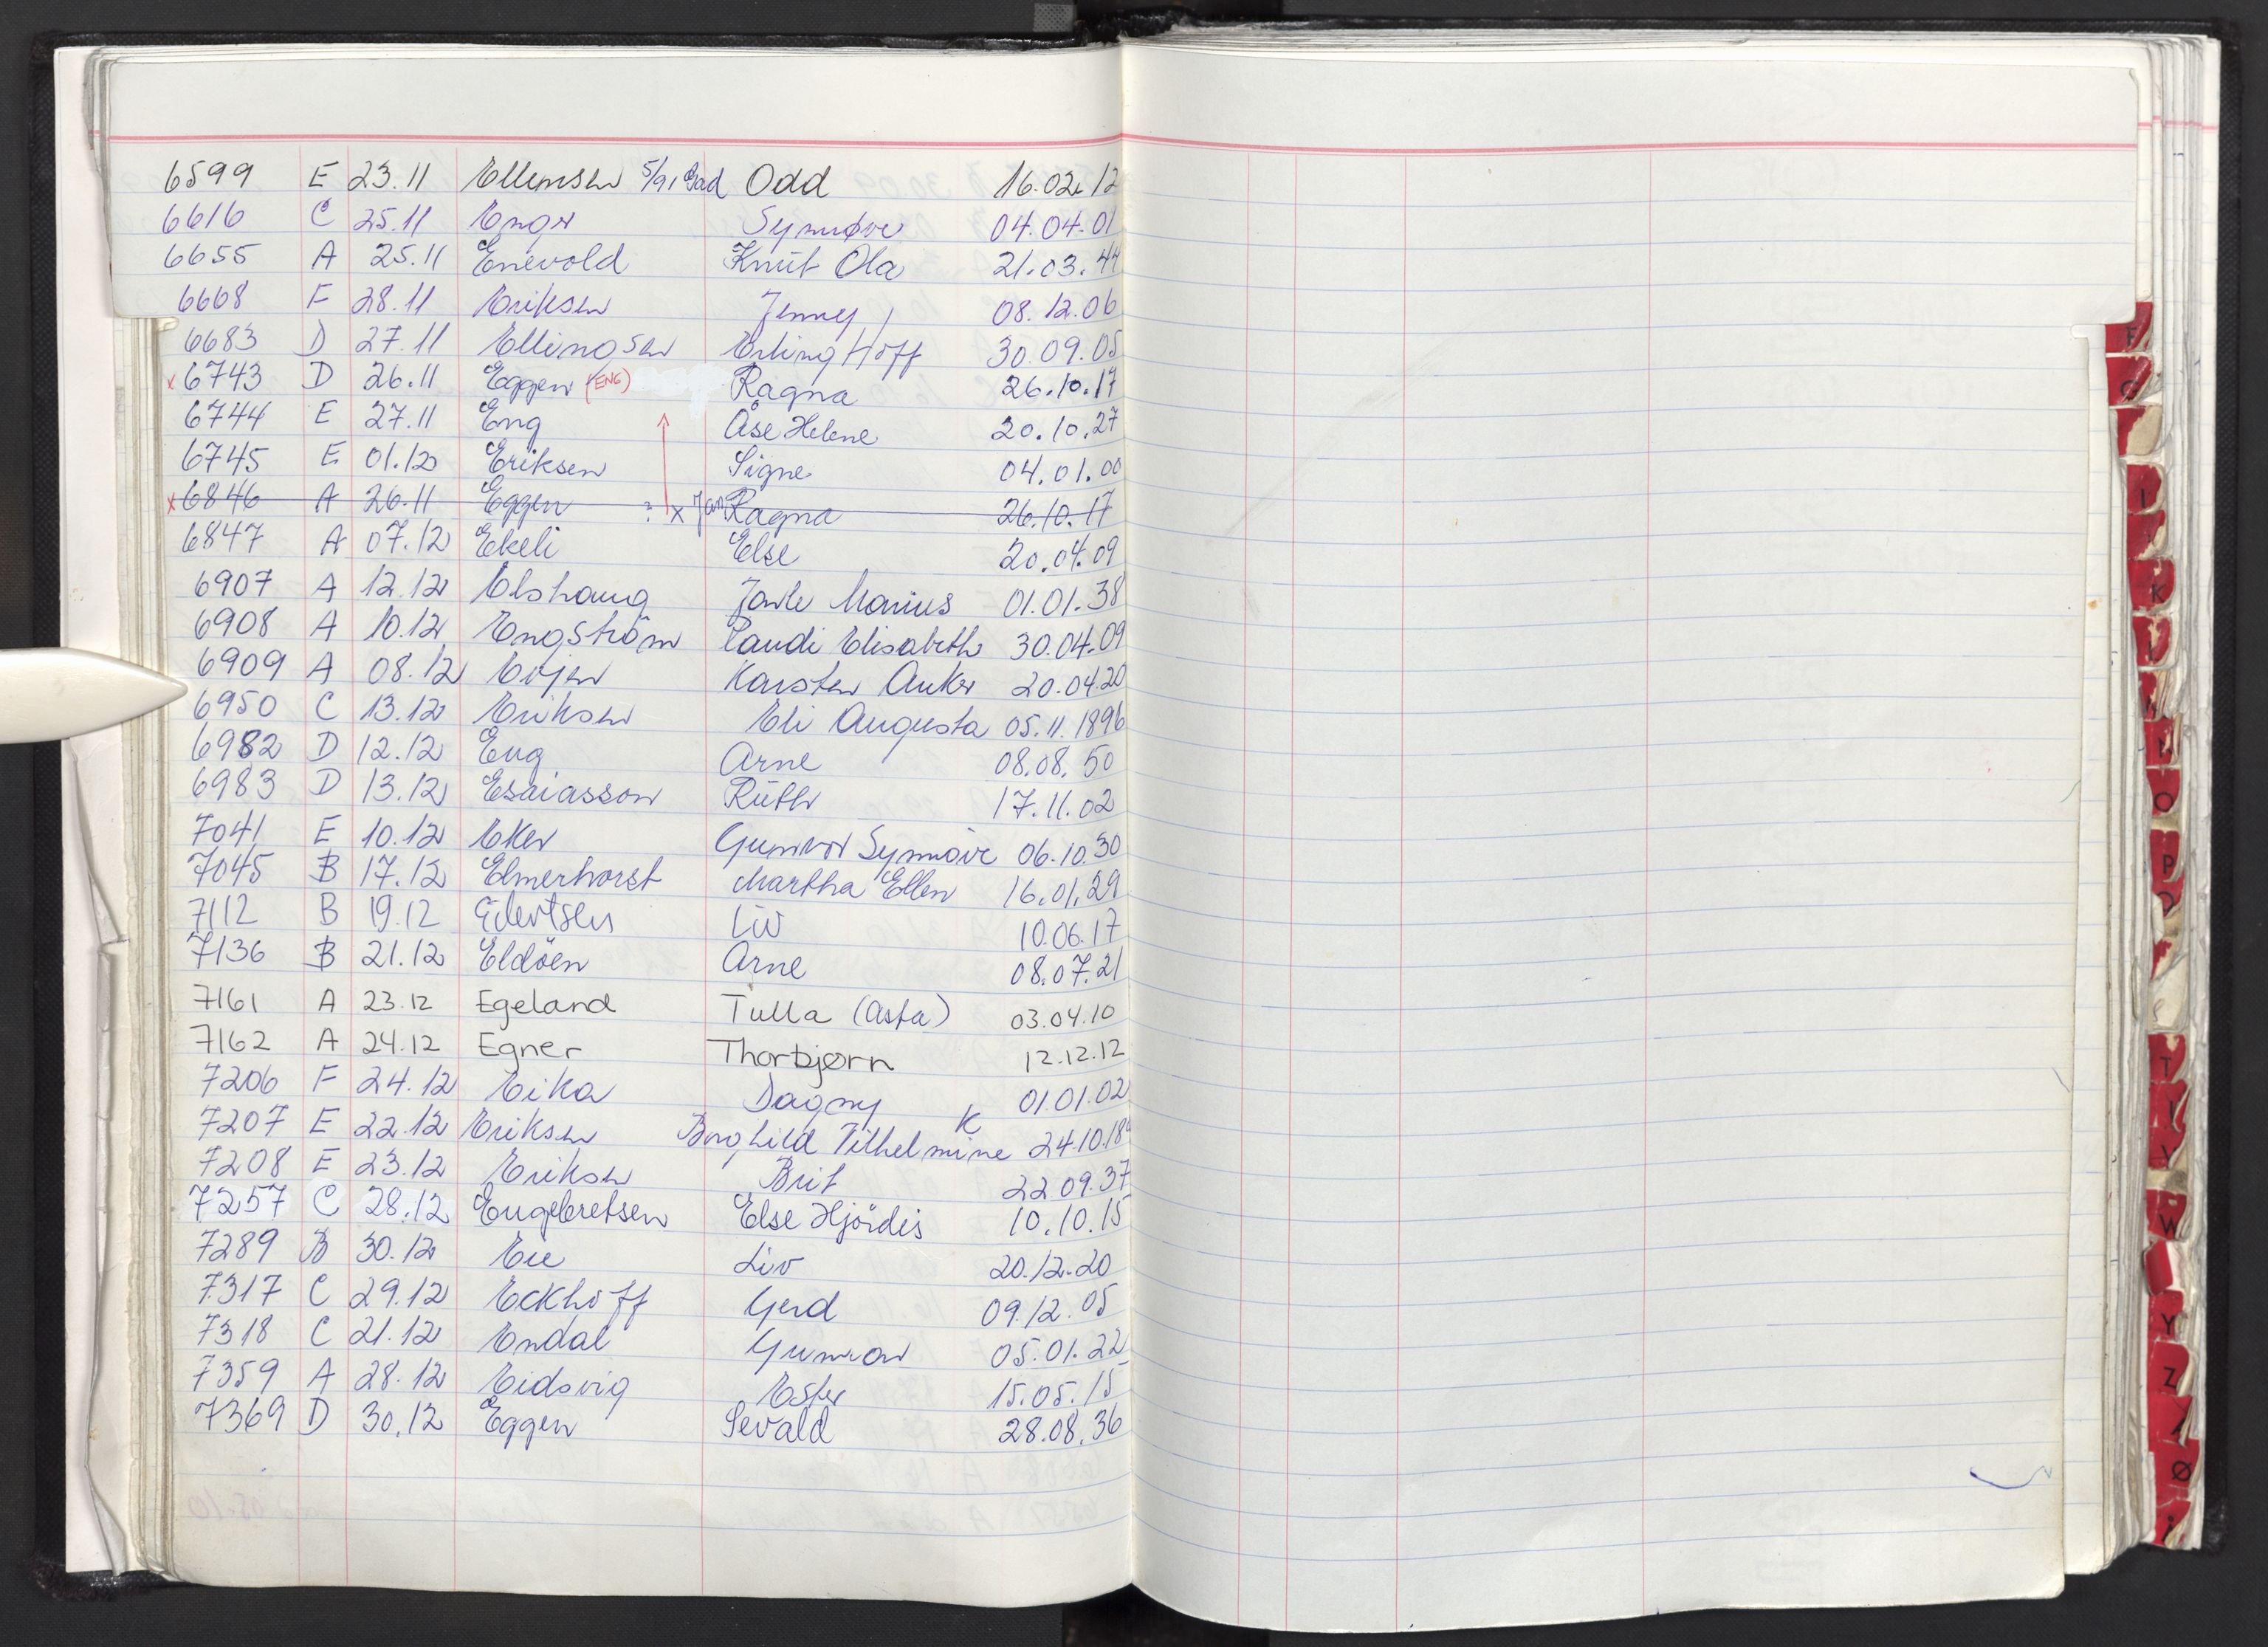 6599 E 23.11 Ellemsen 5/91 Odd 16.02.12
6616 C 25.11 Enger Synnøve 04.04.01
6655 A 25.11 Enevold Knut Ola 21.03.44
6668 F 28.11 Eriksen Jenny 08.12.06
6683 D 27.11 Ellingsen Erling Hoff 30.09.05
x 6743 D 26.11 Eggen (ENG) Ragna 26.10.17
6744 E 27.11 Eng Åse Helene 20.10.27
6745 E 01.12 Eriksen Signe 04.01.00
x 6846 A 26.11 Eggen ? x Ragna 26.10.17
6847 A 07.12 Ekeli Else 20.04.09
6907 A 12.12 Elshaug Jarle Marius 01.01.38
6908 A 10.12 Engström Randi Elisabeth 30.04.09
6909 A 08.12 Evjen Karsten Anker 20.04.20
6950 C 13.12 Eriksen Eli Augusta 05.11.1896
6982 D 12.12 Eng Arne 08.08.50
6983 D 13.12 Esaiasson Ruth 17.11.02
7041 E 10.12 Eker Gunvor Synnöve 06.10.30
7045 B 17.12 Elmerhorst Martha Ellen 16.01.29
7112 B 19.12 Eilertsen Liv 10.06.17
7136 B 21.12 Eldöen Arne 08.07.21
7161 A 23.12 Egeland Tulla (Asta) 03.04.10
7162 A 24.12 Egner Thorbjørn 12.12.12
7206 F 24.12 Eika Dagny 01.01.02
7207 E 22.12 Eriksen Borghild Vilhelmine K 24.10.18
7208 E 23.12 Eriksen Brit 22 09.37
7257 C 28.12 Engebretsen Else Hjördis 10.10.15
7289 B 30.12 Eie Liv 20.12.20
7317 C 29.12 Eckhoff Gerd 09.12.05
7318 C 21.12 Endal Gunvor 05.01.22
7359 A 28.12 Eidsvig Ester 15.05.15
7369 D 30.12 Eggen Sevald 28.08.36
F
G
I
K
L
N
O
P
T
V
W
Y
Z
Ø